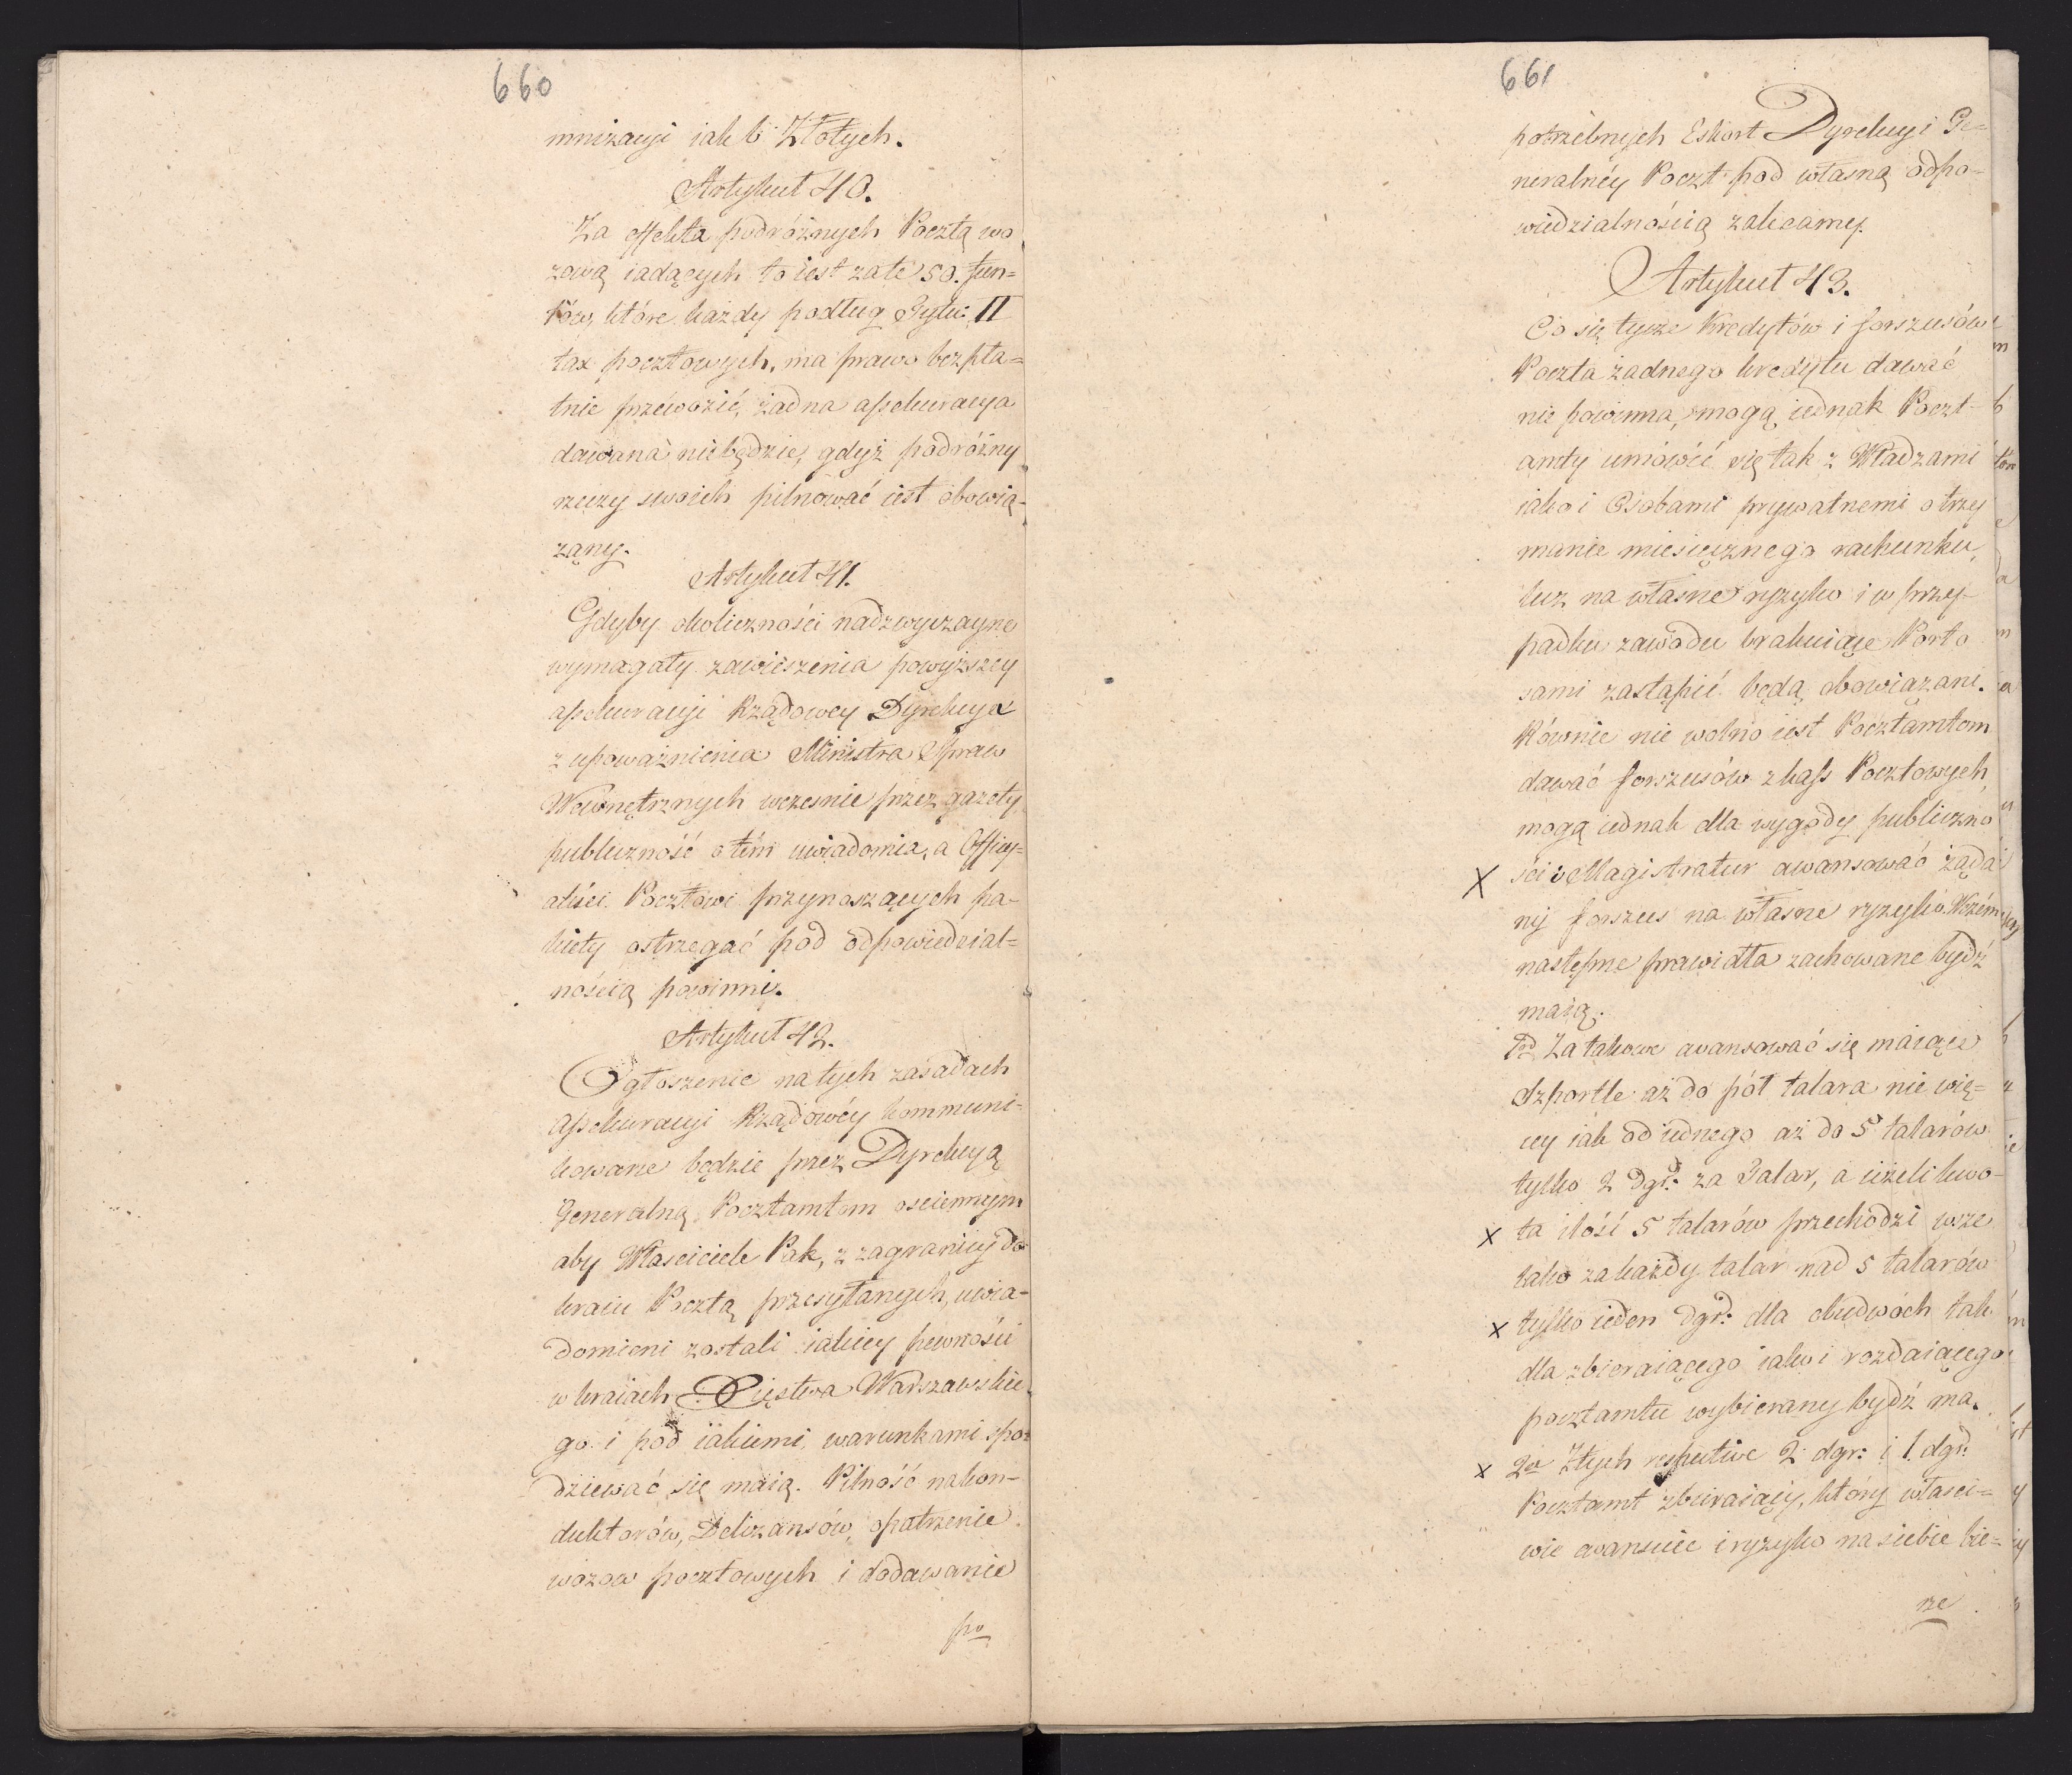 660
mnizacyi iak 6 Złotych.
Artykuł 40.
Za effekta podróżnych Pocztą wo
zową iadących to iest za te 50. fun=
tów, które każdy podług Tytu: II
tax pocztowych, ma prawo bezpła=
tnie przewozić, żadna assekuracya
dawana niebędzie, gdyż podróżny
rzeczy swoich pilnować iest obowią-
zany.
Artykuł 41.
Gdyby okoliczności nadzwyczayne
wymagały zawieszenia powyższey
assekuracyi Rządowey Dyrekcya
z upoważnienia Ministra Spraw
Wewnętrznych wcześnie przez gazety
publiczność o tém uwiadomia, a Officy=
aliści Pocztowi przynoszących pa-
kiety ostrzegać pod odpowiedzial=
nością powinni.
Artykuł 42.
Ogłoszenie na tych zasadach
assekuracyi Rządowéy kommuni-
kowane będzie przez Dyrekcyą
Generalną Pocztamtom ościennym
aby Właściciele Pak, z zagranicy do
kraiu Pocztą przesyłanych, uwia-
domieni zostali iakiey pewności
w kraiach Xięstwa Warszawskie
go i pod iakiemi warunkami spo=
dziewać się maią. Pilność nakon-
duktorów, Deliżansów, opatrzenie
wozow pocztowych i dodawanie
po
661
potrzebnych Eskort Dyrekcyi Ge=
neralnéy Poczt pod własną odpo-
wiedzialnością zalecamy.
Artykuł 43.
Co się tycze Kredytów i forszusów
Poczta żadnego kredytu dawać
nie powinna, mogą iednak Poczt-
amty umówić się tak z Władzami
iako i Osobami prywatnemi o trzy
manie miesięcznego rachunku,
lecz na własne ryzyko i w przy-
padku zawodu brakuiące Porto
sami zastąpić będą obowiązani.
Równie nie wolno iest Pocztamtom
dawać forszusów z kass Pocztowych,
mogą iednak dla wygody publiczno
X ści i Magistratur awansować żąda
ny forszus na własne ryzyko. Wczém
następne prawidła zachowane bydź
maią.
1od Za takowe awansować się maiące
Szportle aż do pół talara nie wię=
cey iak od iednego aż do 5 talarów
tylko 2 dgr: za Talar, a ieżeli kwo-
x ta ilość 5 talarów przechodzi wsze
lako za każdy talar nad 5 talarów
x tylko ieden dgr: dla obudwóch tak
dla zbieraiącego iako i rozdaiącego
pocztamtu wybierany bydź ma.
x 2do Ztych respective 2 dgr: i 1 dgr:
Pocztamt zbieraiący, który właści=
wie awansuie i ryzyko na siebie bie=
rze